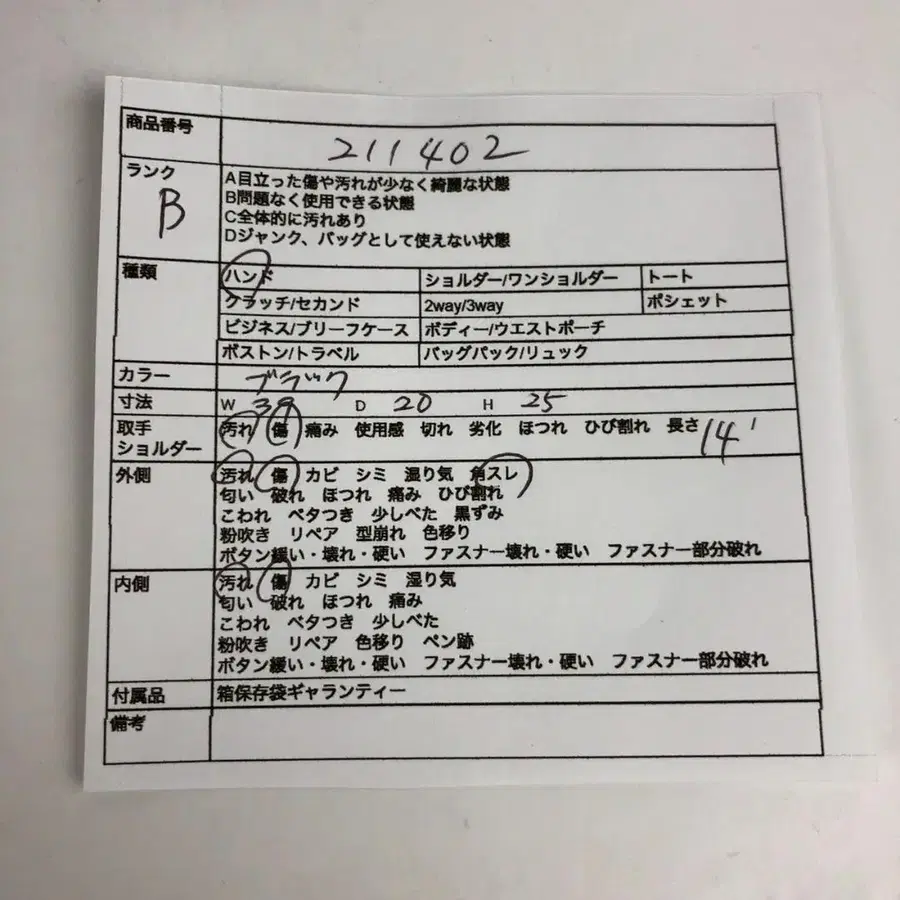 商品番号 211402
ランク B
A目立った傷や汚れが少なく綺麗な状態
B問題なく使用できる状態
C全体的に汚れあり
Dジャンク、バッグとして使えない状態
種類 ハンド ショルダー/ワンショルダー トート
クラッチ/セカンド 2way/3way ポシェット
ビジネス/ブリーフケース ボディー/ウエストポーチ
ボストン/トラベル バッグパック/リュック
カラー ブラック
寸法 W 39 D 20 H 25
取手 汚れ 傷 痛み 使用感 切れ 劣化 ほつれ ひび割れ 長さ 14
ショルダー
外側 汚れ 傷 カビ シミ 湿り気 角スレ
匂い 破れ ほつれ 痛み ひび割れ
こわれ ベタつき 少しべた 黒ずみ
粉吹き リペア 型崩れ 色移り
ボタン緩い・壊れ・硬い ファスナー壊れ・硬い ファスナー部分破れ
内側 汚れ 傷 カビ シミ 湿り気
匂い 破れ ほつれ 痛み
こわれ ベタつき 少しべた
粉吹き リペア 色移り ペン跡
ボタン緩い・壊れ・硬い ファスナー壊れ・硬い ファスナー部分破れ
付属品 箱保存袋ギャランティー
備考